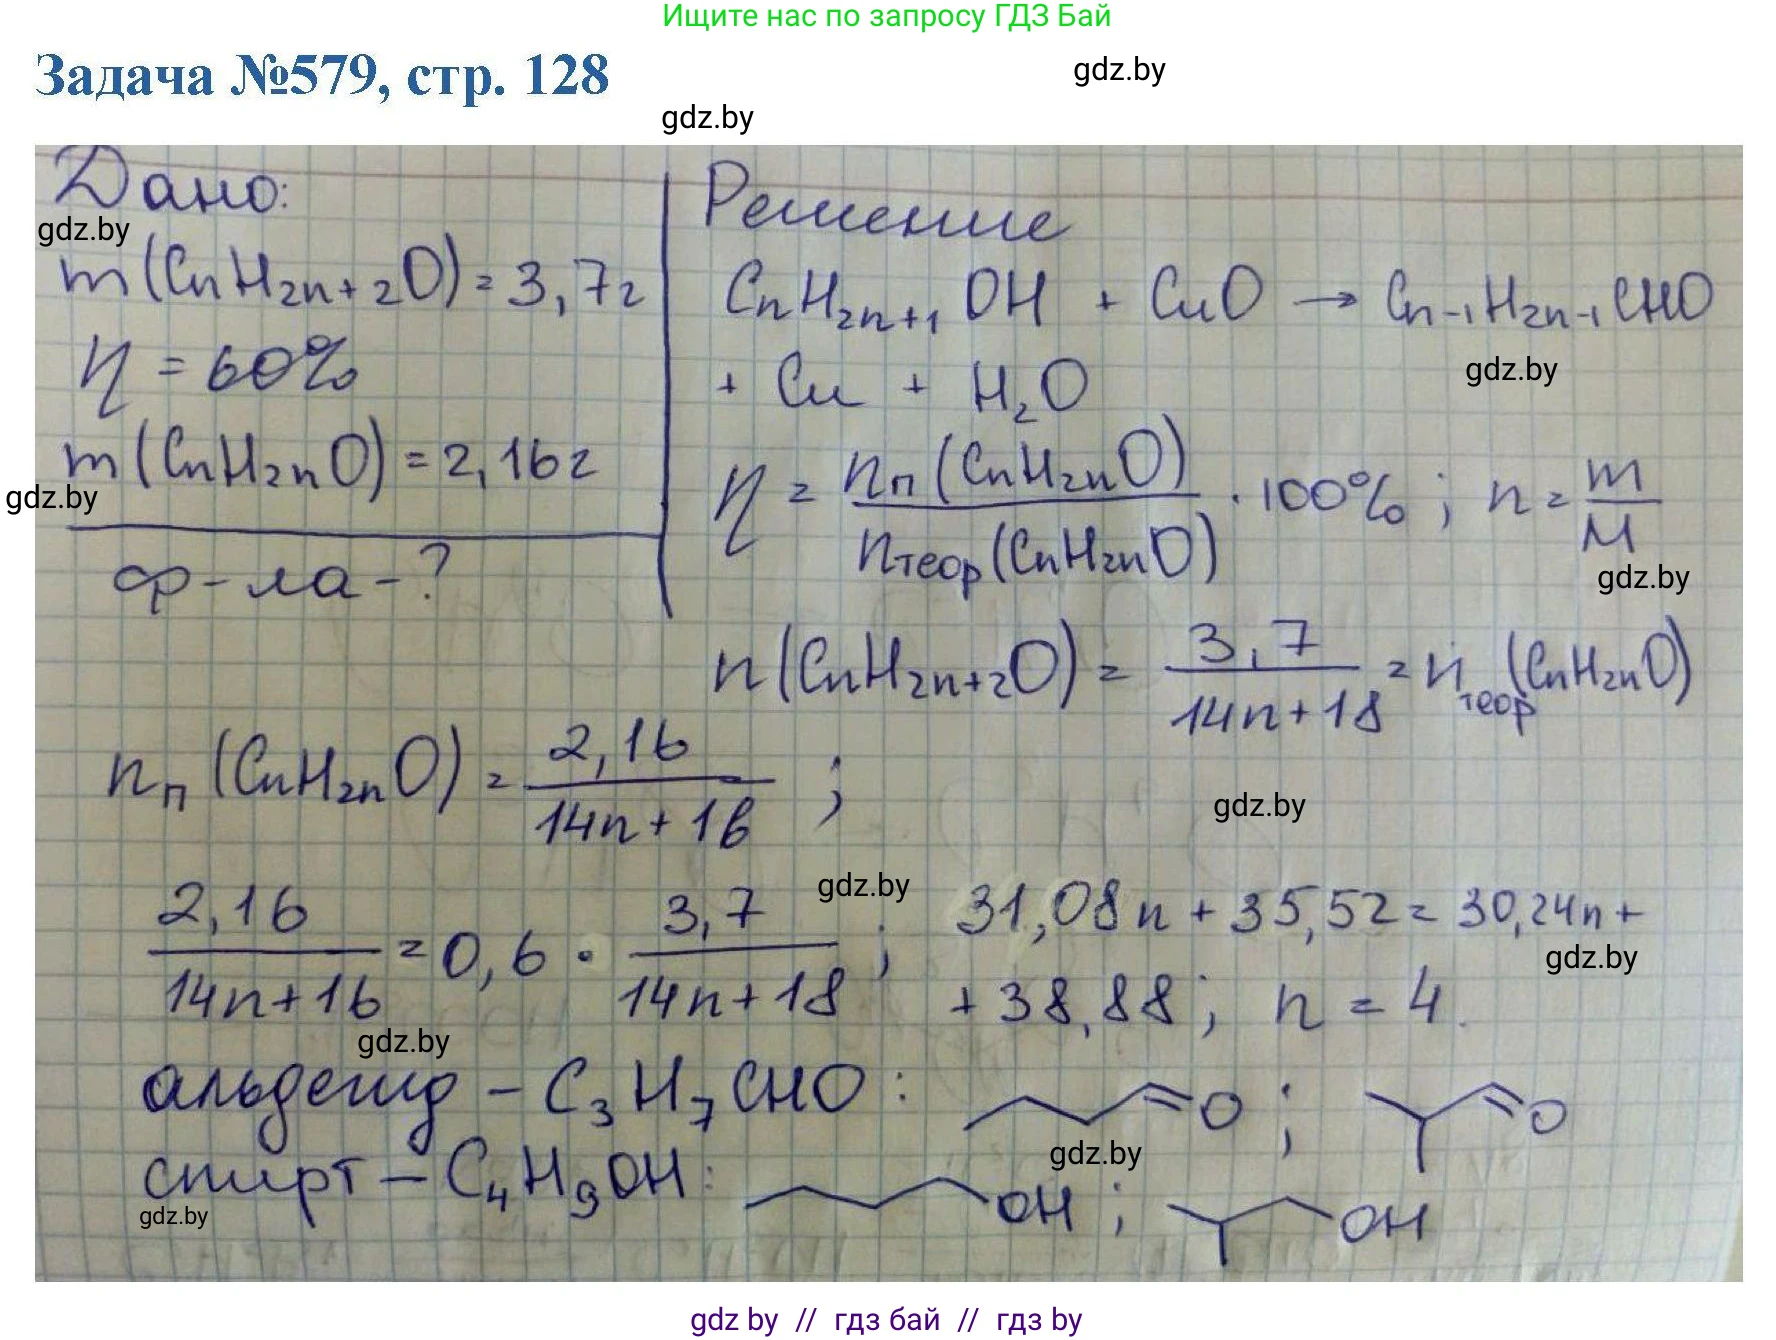 Ищите нас по запросу ГДЗ Бай
Задача №579, стр. 128
gdz.by
gdz.by
Дано:
gdz.by
m(CnH2n+2O) = 3,7г
η = 60%
m(CnH2nO) = 2,16г
gdz.by
ф-ла - ?
Решение
CnH2n+1OH + CuO → Cn-1H2n-1CHO
gdz.by
+ Cu + H2O
η = nп(CnH2nO) / nтеор(CnH2nO) · 100% ; n = m / M
gdz.by
n(CnH2n+2O) = 3,7 / 14n+18 = nтеор(CnH2nO)
nп(CnH2nO) = 2,16 / 14n+16 ;
gdz.by
gdz.by
2,16 / 14n+16 = 0,6 · 3,7 / 14n+18 ; 31,08n + 35,52 = 30,24n +
gdz.by
+ 38,88 ; n = 4.
gdz.by
альдегид - C3H7CHO : O ; O
gdz.by
спирт - C4H9OH : OH ; OH
gdz.by
gdz by // гдз бай // гдз by